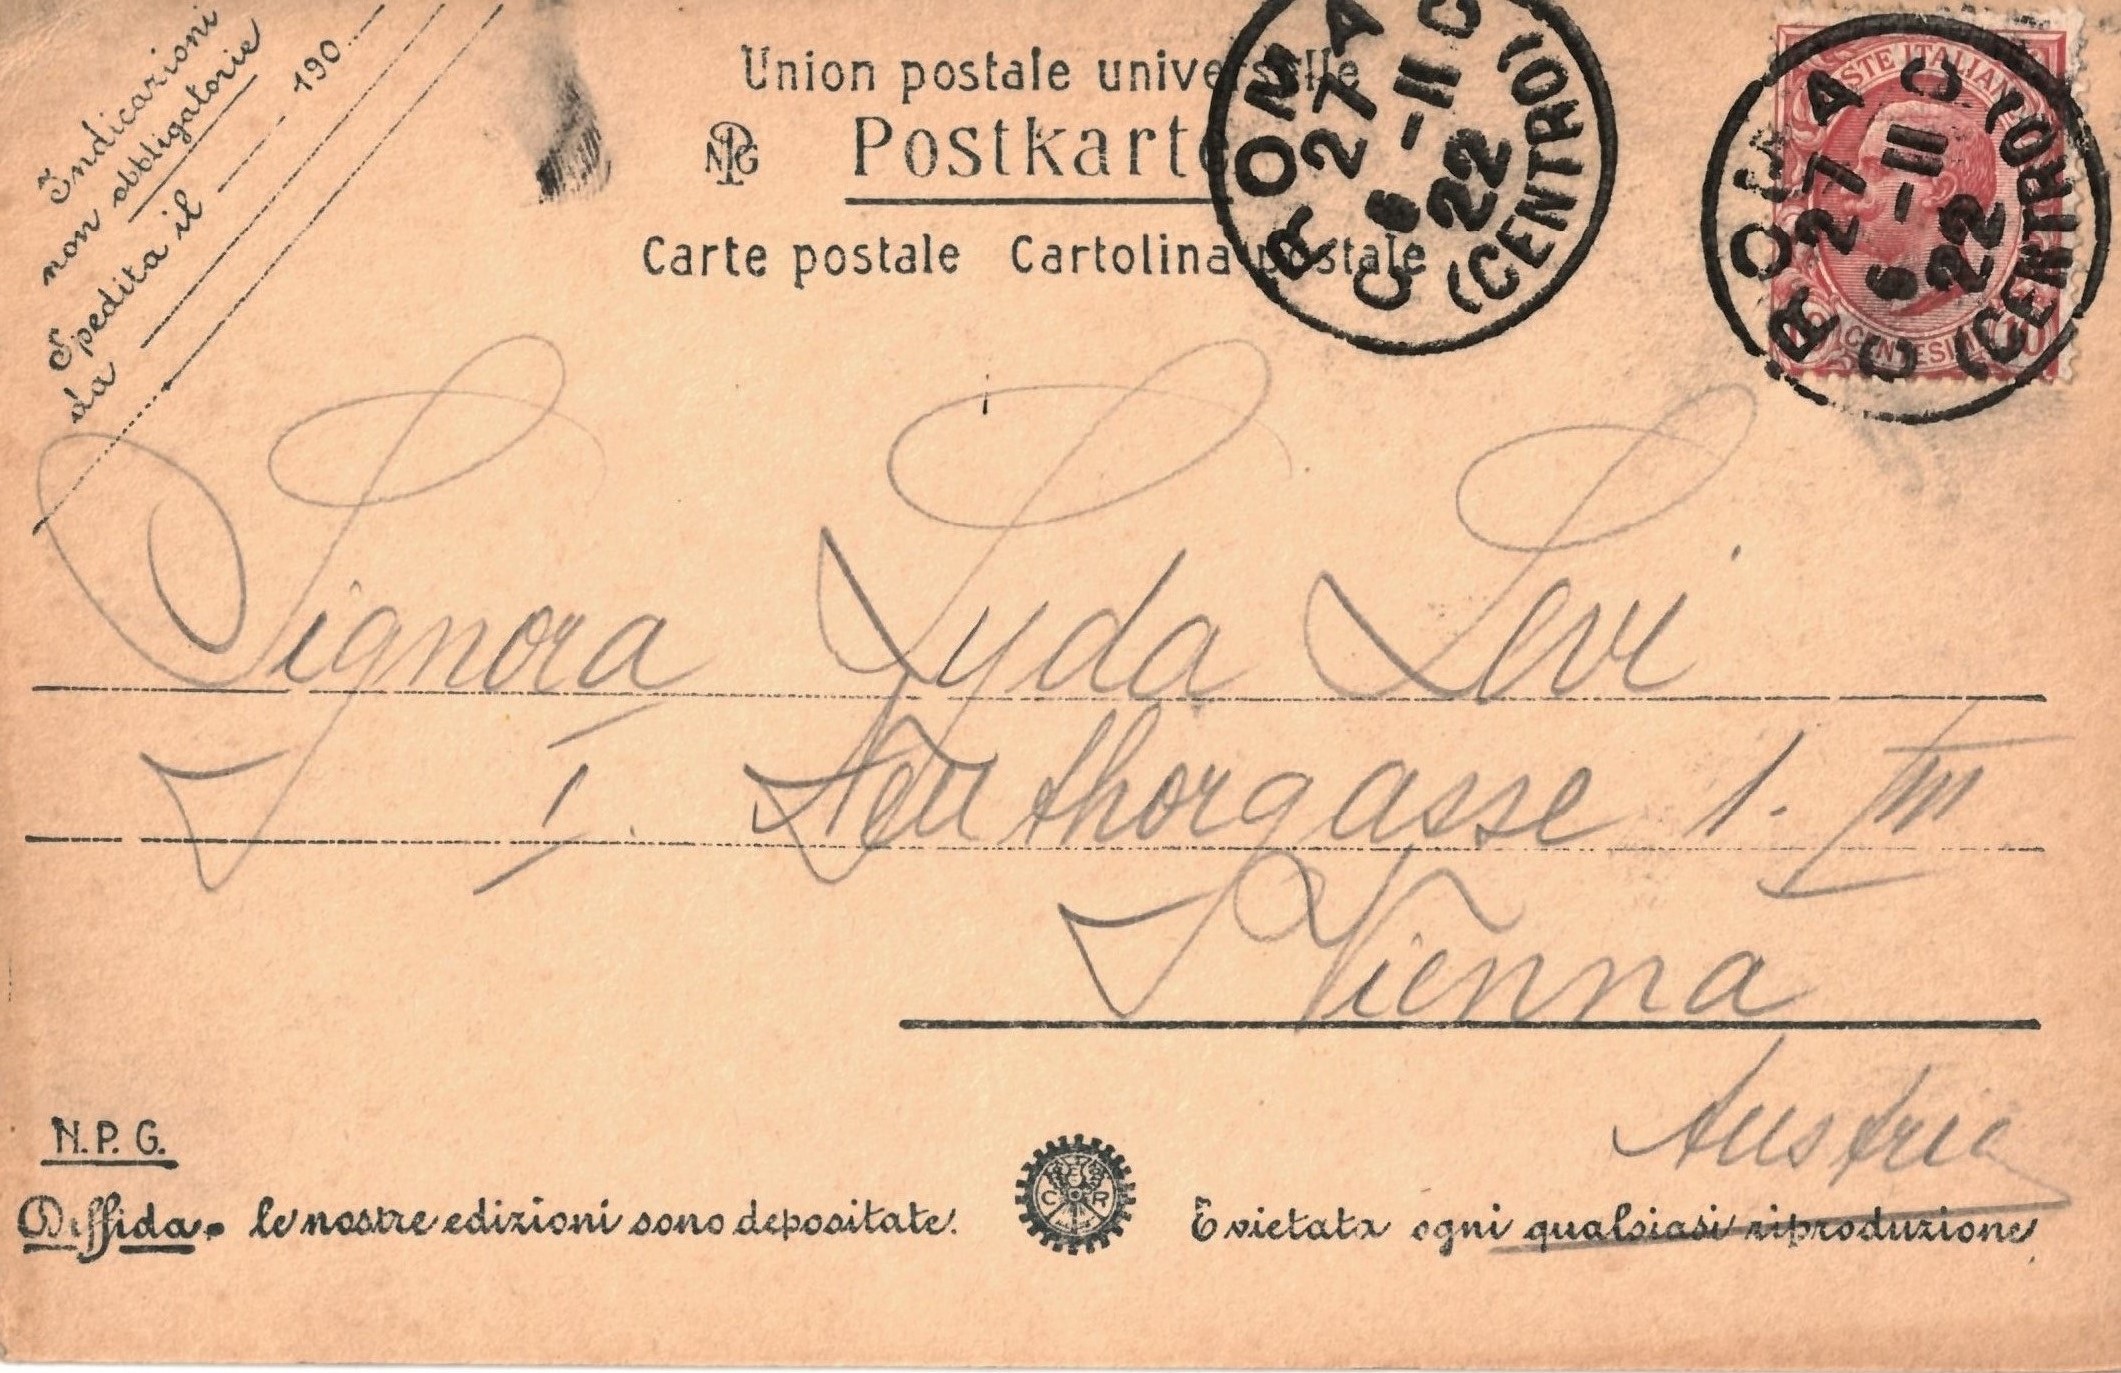 Indicazioni
non obbligatorie
Spedita il 190
da
Union postale universelle
NPG Postkarte
Carte postale Cartolina postale
ROMA
(CENTRO)
27 A
6-11
22
POSTE ITALIANE
CENTESIMI 10
ROMA
(CENTRO)
27 A
6-11
22
Signora Lyda Levi
I. Neuthorgasse 1. III
Vienna
Austria
N.P.G.
Diffida. le nostre edizioni sono depositate.
C R
È vietata ogni qualsiasi riproduzione